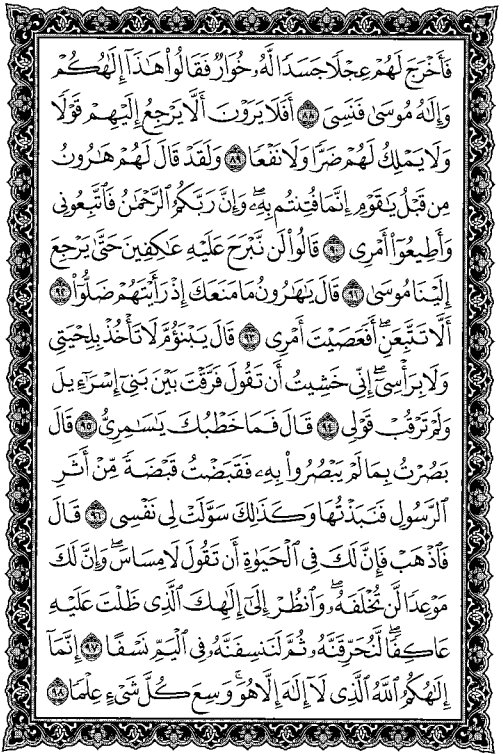 فَأَخْرَجَ لَهُمْ عِجْلًا جَسَدًا لَّهُۥ خُوَارٌ فَقَالُوا۟ هَٰذَآ إِلَٰهُكُمْ
وَإِلَٰهُ مُوسَىٰ فَنَسِىَ ٨٨ أَفَلَا يَرَوْنَ أَلَّا يَرْجِعُ إِلَيْهِمْ قَوْلًا
وَلَا يَمْلِكُ لَهُمْ ضَرًّا وَلَا نَفْعًا ٨٩ وَلَقَدْ قَالَ لَهُمْ هَٰرُونُ
مِن قَبْلُ يَٰقَوْمِ إِنَّمَا فُتِنتُم بِهِۦ ۖ وَإِنَّ رَبَّكُمُ ٱلرَّحْمَٰنُ فَٱتَّبِعُونِى
وَأَطِيعُوٓا۟ أَمْرِى ٩٠ قَالُوا۟ لَن نَّبْرَحَ عَلَيْهِ عَٰكِفِينَ حَتَّىٰ يَرْجِعَ
إِلَيْنَا مُوسَىٰ ٩١ قَالَ يَٰهَٰرُونُ مَا مَنَعَكَ إِذْ رَأَيْتَهُمْ ضَلُّوٓا۟ ٩٢
أَلَّا تَتَّبِعَنِ ۖ أَفَعَصَيْتَ أَمْرِى ٩٣ قَالَ يَبْنَؤُمَّ لَا تَأْخُذْ بِلِحْيَتِى
وَلَا بِرَأْسِىٓ ۖ إِنِّى خَشِيتُ أَن تَقُولَ فَرَّقْتَ بَيْنَ بَنِىٓ إِسْرَٰٓءِيلَ
وَلَمْ تَرْقُبْ قَوْلِى ٩٤ قَالَ فَمَا خَطْبُكَ يَٰسَٰمِرِىُّ ٩٥ قَالَ
بَصُرْتُ بِمَا لَمْ يَبْصُرُوا۟ بِهِۦ فَقَبَضْتُ قَبْضَةً مِّنْ أَثَرِ
ٱلرَّسُولِ فَنَبَذْتُهَا وَكَذَٰلِكَ سَوَّلَتْ لِى نَفْسِى ٩٦ قَالَ
فَٱذْهَبْ فَإِنَّ لَكَ فِى ٱلْحَيَوٰةِ أَن تَقُولَ لَا مِسَاسَ ۖ وَإِنَّ لَكَ
مَوْعِدًا لَّن تُخْلَفَهُۥ ۖ وَٱنظُرْ إِلَىٰٓ إِلَٰهِكَ ٱلَّذِى ظَلْتَ عَلَيْهِ
عَاكِفًا ۖ لَّنُحَرِّقَنَّهُۥ ثُمَّ لَنَنسِفَنَّهُۥ فِى ٱلْيَمِّ نَسْفًا ٩٧ إِنَّمَآ
إِلَٰهُكُمُ ٱللَّهُ ٱلَّذِى لَآ إِلَٰهَ إِلَّا هُوَ ۚ وَسِعَ كُلَّ شَىْءٍ عِلْمًا ٩٨